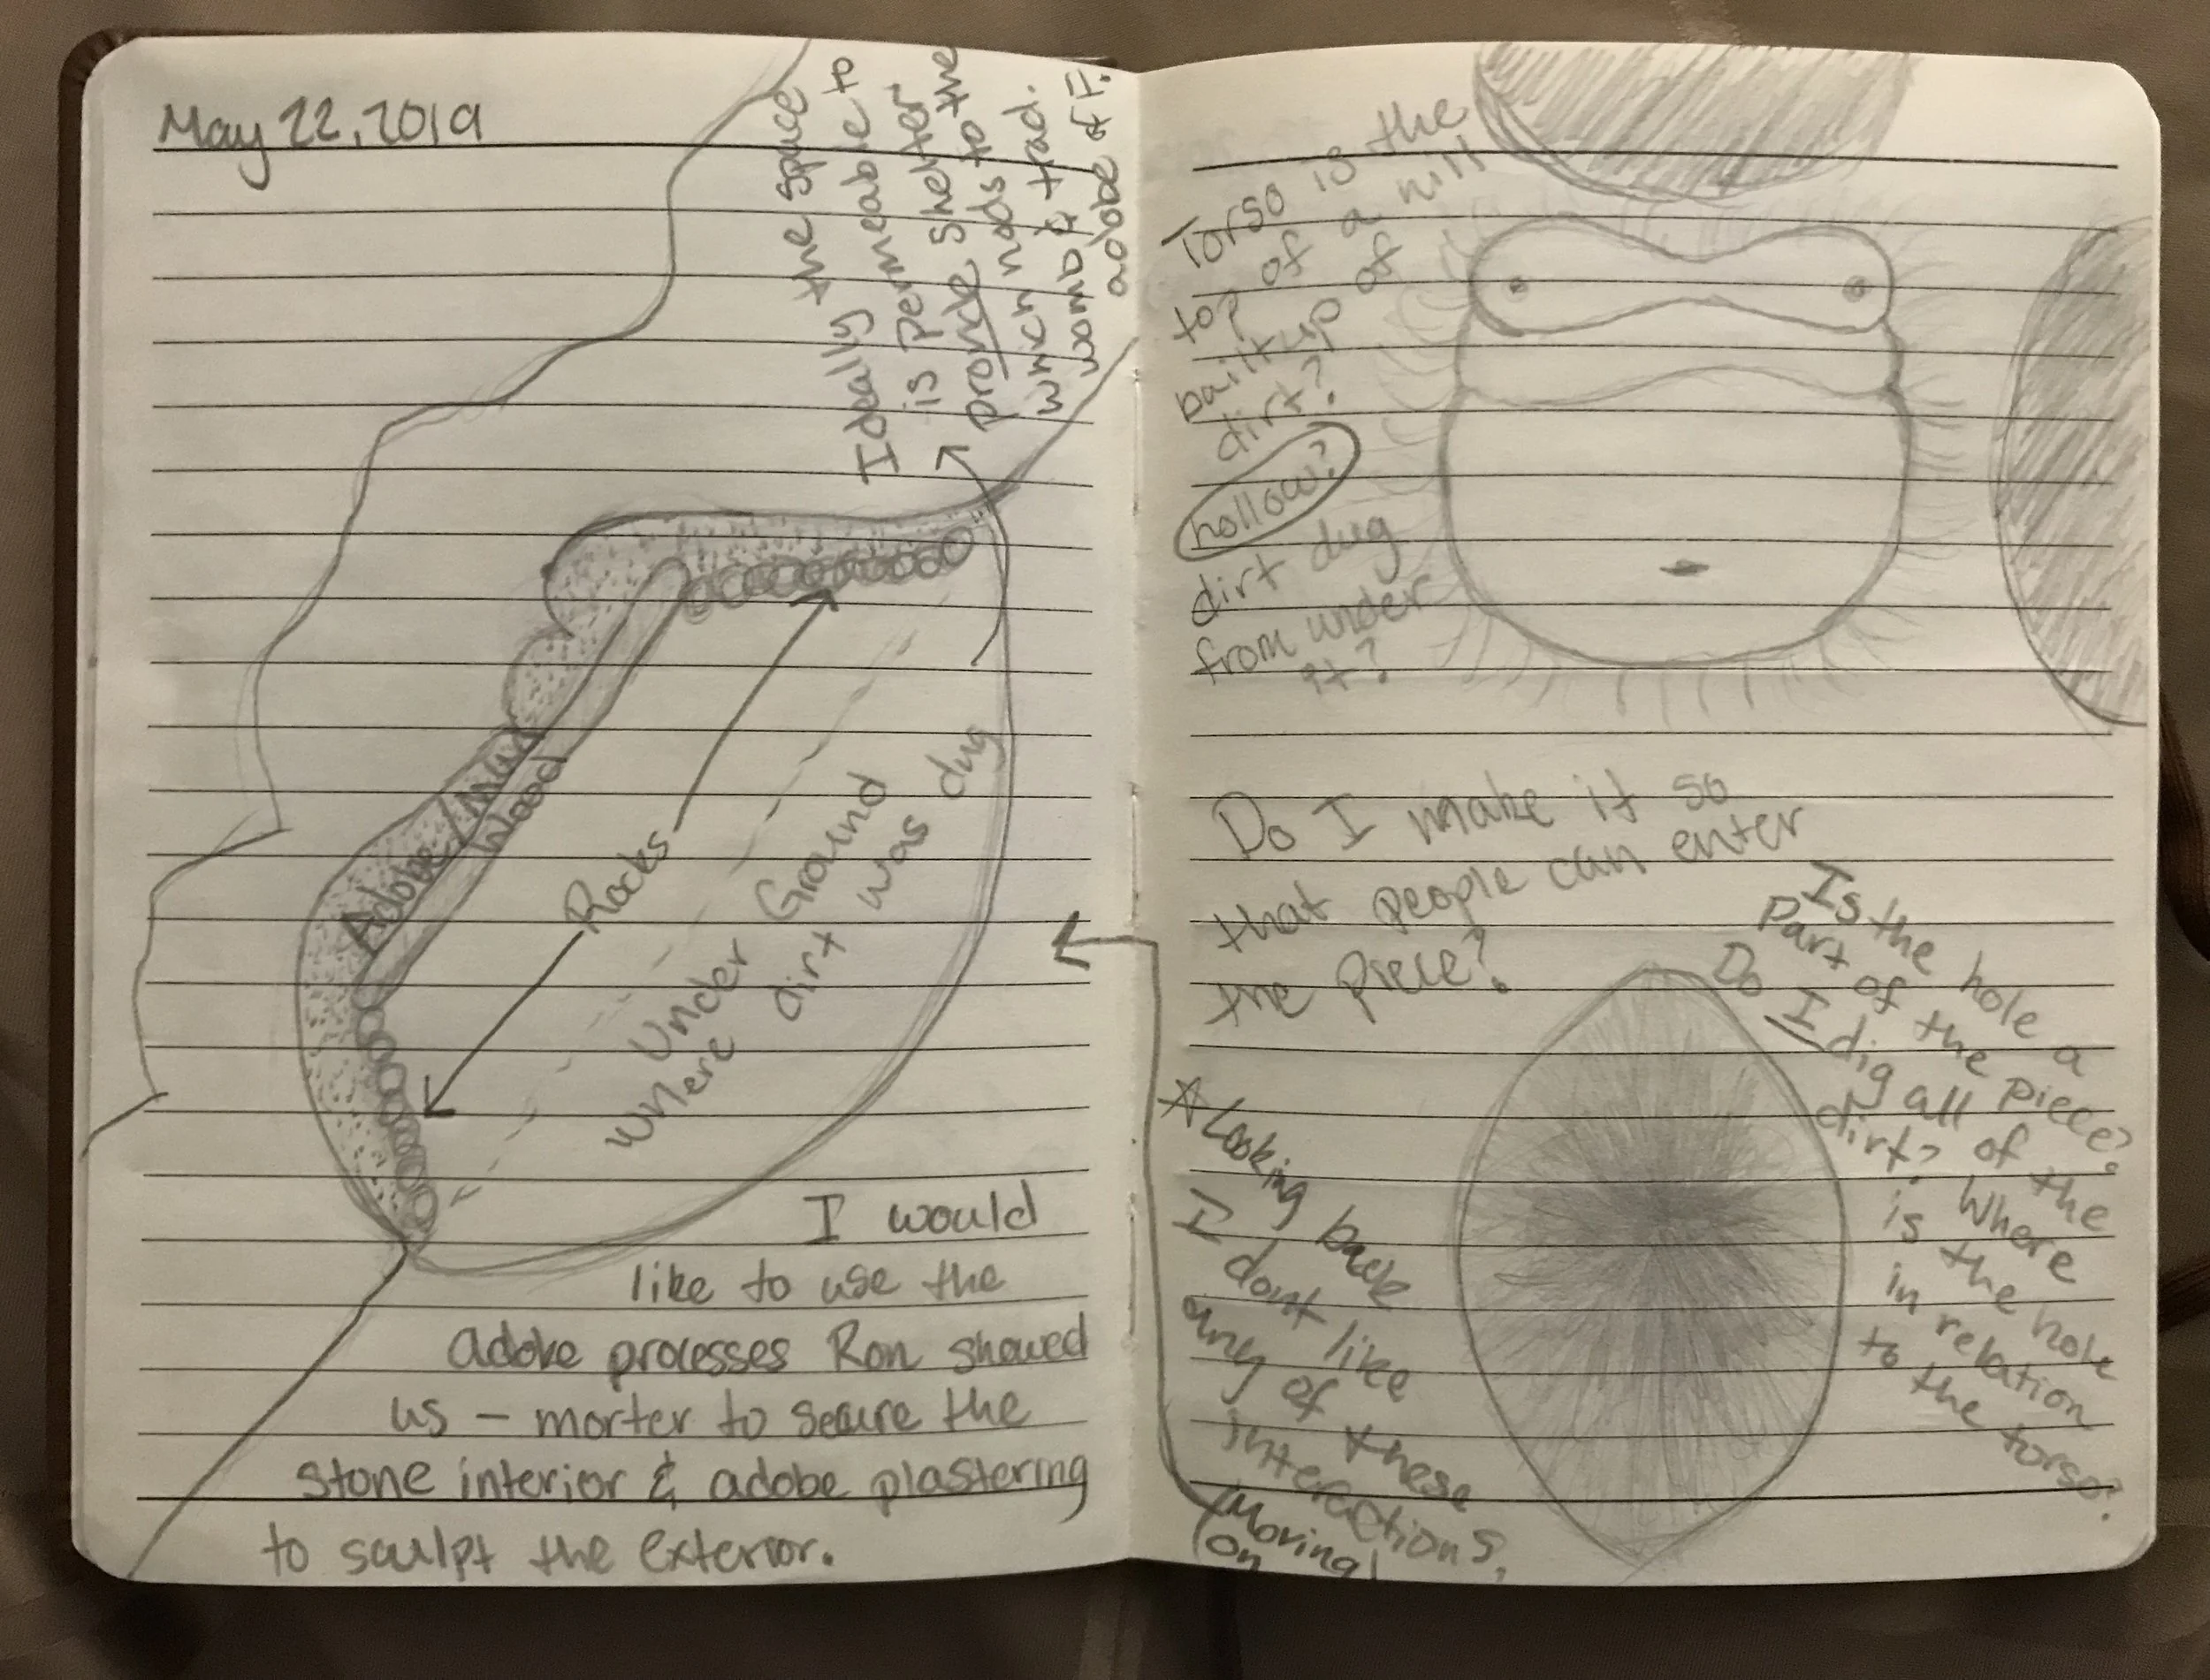 May 22, 2019
Ideally the space
is permeable to
provide shelter
which nods to the
womb & trad.
adobe of F.
Adobe/Mud
Wood
Rocks
Under Ground
where dirt was dug
I would
like to use the
adobe processes Ron showed
us - morter to secure the
stone interior & adobe plastering
to sculpt the exterior.
Torso is the
top of a hill
built up of
dirt?
hollow?
dirt dug
from under
it?
Do I make it so
that people can enter
the piece?
Is the hole a
Part of the piece?
Do I dig all of the
dirt? Where
is the hole
in relation
to the torso?
☆ Looking back
I dont like
any of these
interactions,
Moving
on